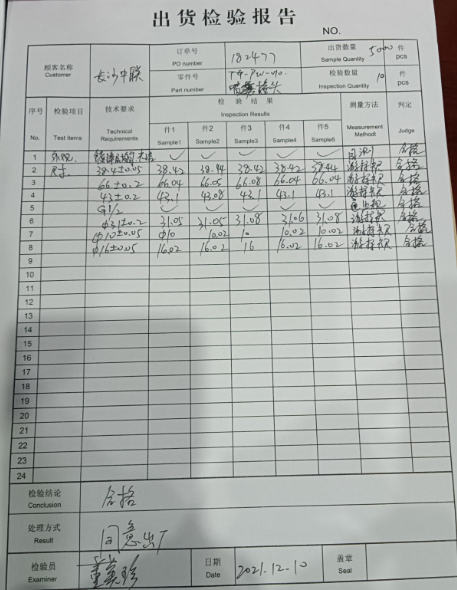 出货检验报告
NO.
顾客名称 Customer 长沙中联 订单号 PO number 182477 出货数量 Sample Quantity 5000 件 pcs
零件号 Part number 喷雾接头 检验数量 Inspection Quantity 10 件 pcs
序号 No. 检验项目 Test items 技术要求 Technical Requirements 检验结果 Inspection Results 测量方法 Measurement Methods 判定 Judge
件1 Sample1 件2 Sample2 件3 Sample3 件4 Sample4 件5 Sample5
1 外观 ✓ ✓ ✓ ✓ ✓ 目测 合格
2 尺寸 38.4±0.05 38.42 38.44 38.42 38.42 38.44 游标卡尺 合格
3 66±0.2 66.04 66.05 66.08 66.04 66.04 游标卡尺 合格
4 43±0.2 43.1 43.08 43.1 43.1 43.1 游标卡尺 合格
5 G1/2 ✓ ✓ ✓ ✓ ✓ 合格
6 φ31±0.2 31.05 31.05 31.08 31.06 31.08 游标卡尺 合格
7 φ10±0.05 φ10 10.02 10 10.02 10.02 游标卡尺 合格
8 φ16±0.05 16.02 16.02 16 16.02 16.02 游标卡尺 合格
9
10
11
12
13
14
15
16
17
18
19
20
21
22
23
24
检验结论 Conclusion 合格
处理方式 Result 同意出厂
检验员 Examiner 日期 Date 2021.12.10 盖章 Seal